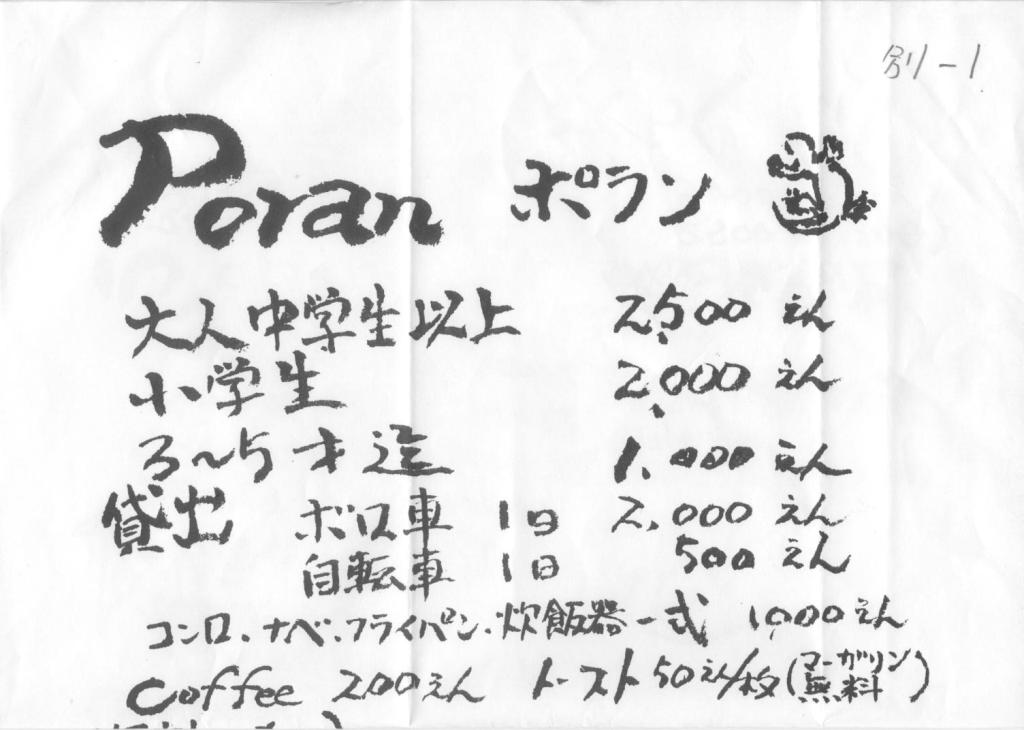 別-1
Poran ポラン
大人中学生以上 2,500 えん
小学生 2,000 えん
3~5才迄 1,000 えん
貸出 ボロ車 1日 2,000 えん
自転車 1日 500 えん
コンロ、ナベ、フライパン、炊飯器一式 1,000えん
Coffee 200えん トースト50えん/枚(マーガリン無料)